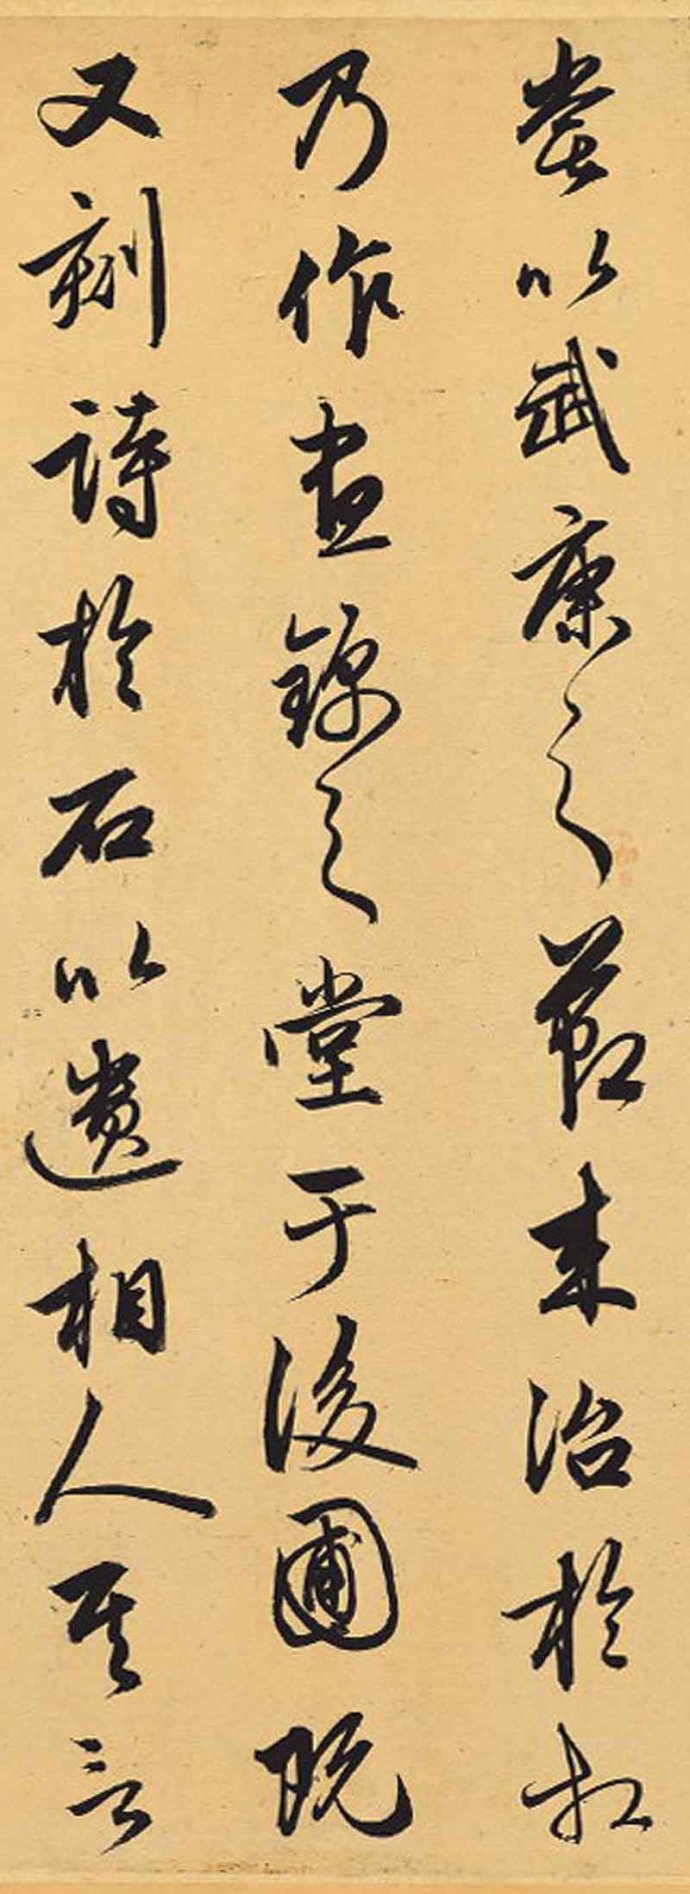 嘗以武康之節来治於相
乃作晝錦之堂于後圃既
又刻詩於石以遺相人其言